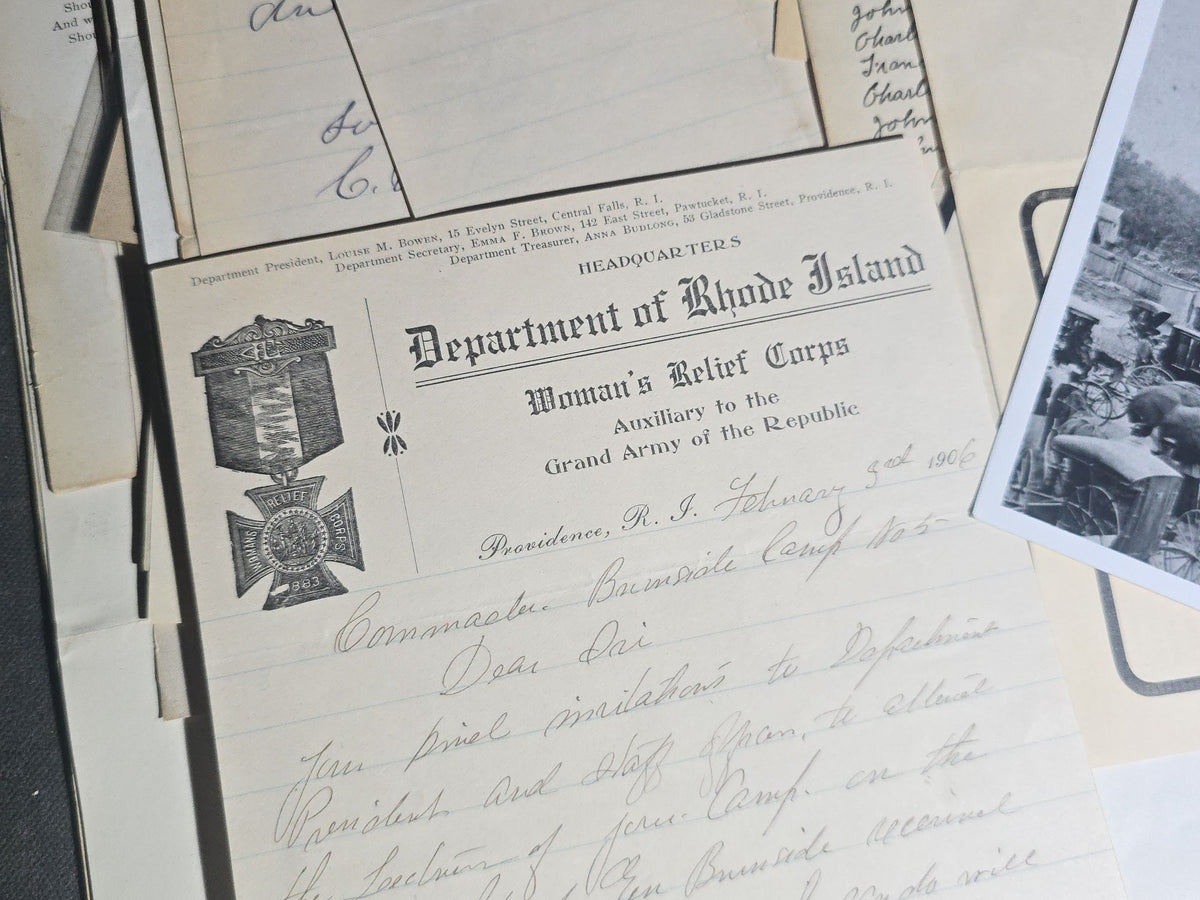 Shou
And w
Shou
su
C.
John
Charl
Fran
Charl
John
Department President, LOUISE M. BOWEN, 15 Evelyn Street, Central Falls, R. I.
Department Secretary, EMMA F. BROWN, 142 East Street, Pawtucket, R. I.
Department Treasurer, ANNA BUDLONG, 53 Gladstone Street, Providence, R. I.
HEADQUARTERS
Department of Rhode Island
Woman's Relief Corps
Auxiliary to the
Grand Army of the Republic
WOMANS RELIEF CORPS
1883
Providence, R. I. February 3rd 1906
Commader. Burnside Camp No 5
Dear Sir
Your kind invitations to Department
President and Staff Officers, to attend
the of your Camp. on the
Gen Burnside received
will